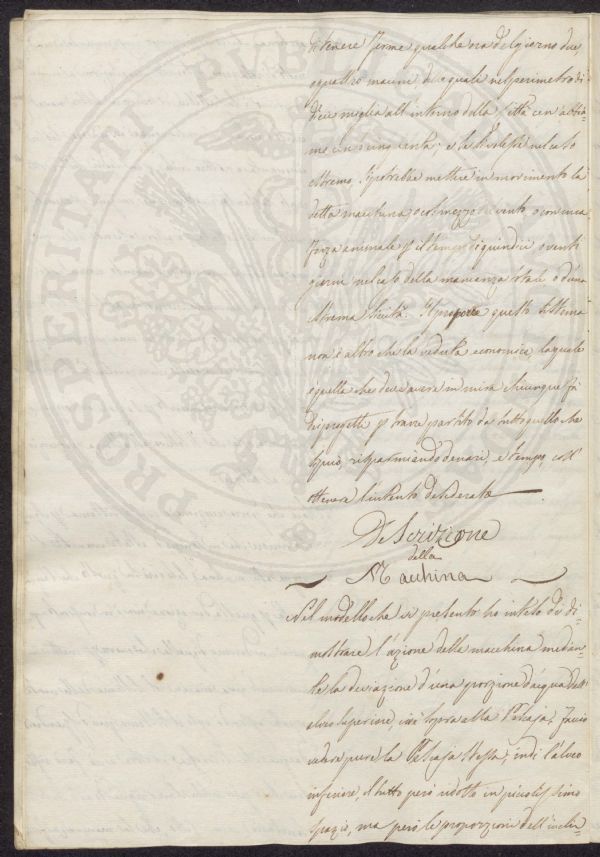 di tenere ferme qualche ora del giorno due,
o quattro macine due quale nel perimetro di
dieci miglia all'interno della Città cen'abbia-
mo cinquanta; e se
estremo. Si potrebbe mettere in movimento la
detta macchina o col mezzo di vento, o con una
forza animale p il tempo di quindici o venti
giorni nel caso della mancanza totale o d'una
estrema Siccità. Il proporre questo Sistema
non è altro che la veduta economica la quale
è quella che deve avere in mira chiunque fa
di progetti p trarre partito da tutto quello che
si può, risparmiando denari, e tempo, coll'
ottenere l'intento desiderato
Descrizione
della
Macchina
Nel modello che si presenta ho inteso di di-
mostrare l'azione della macchina median-
te la deviazione d'una porzione d'acqua dell'
alveo superiore, cioè sopra alla Pescaja; faccio
vedere pure la Pescaja stessa; indi l'alveo
inferiore, il tutto però ridotto in piccolissimo
spazio, ma però le proporzioni dell'incli-
PROSPERITATI PUBLICAE